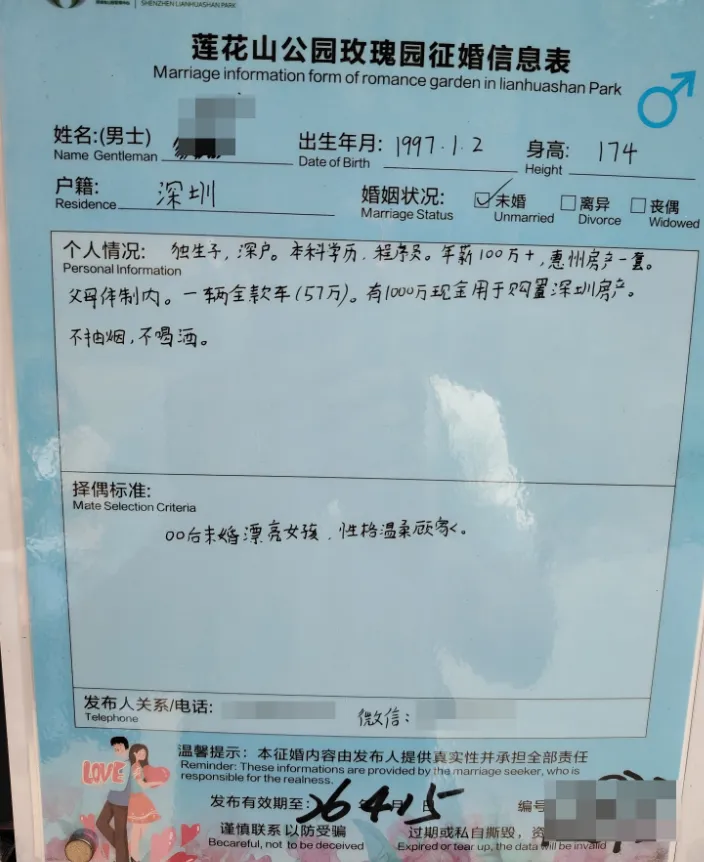 SHENZHEN LIANHUASHAN PARK
莲花山公园玫瑰园征婚信息表
Marriage information form of romance garden in lianhuashan Park
姓名:(男士)
Name Gentleman
出生年月: 1997.1.2
Date of Birth
身高: 174
Height
户籍: 深圳
Residence
婚姻状况: 未婚 离异 丧偶
Marriage Status Unmarried Divorce Widowed
个人情况: 独生子,深户。本科学历,程序员。年薪100万+,惠州房产一套。
Personal Information
父母体制内。一辆全款车(57万)。有1000万现金用于购置深圳房产。
不抽烟,不喝酒。
择偶标准:
Mate Selection Criteria
00后未婚漂亮女孩,性格温柔顾家。
发布人关系/电话: 微信:
Telephone
LOVE
温馨提示: 本征婚内容由发布人提供真实性并承担全部责任
Reminder: These information are provided by the marriage seeker, who is
responsible for the realness.
发布有效期至: 26415 月 日 编号
谨慎联系以防受骗 过期或私自撕毁,资
Becareful, not to be deceived Expired or tear up, the data will be invalid